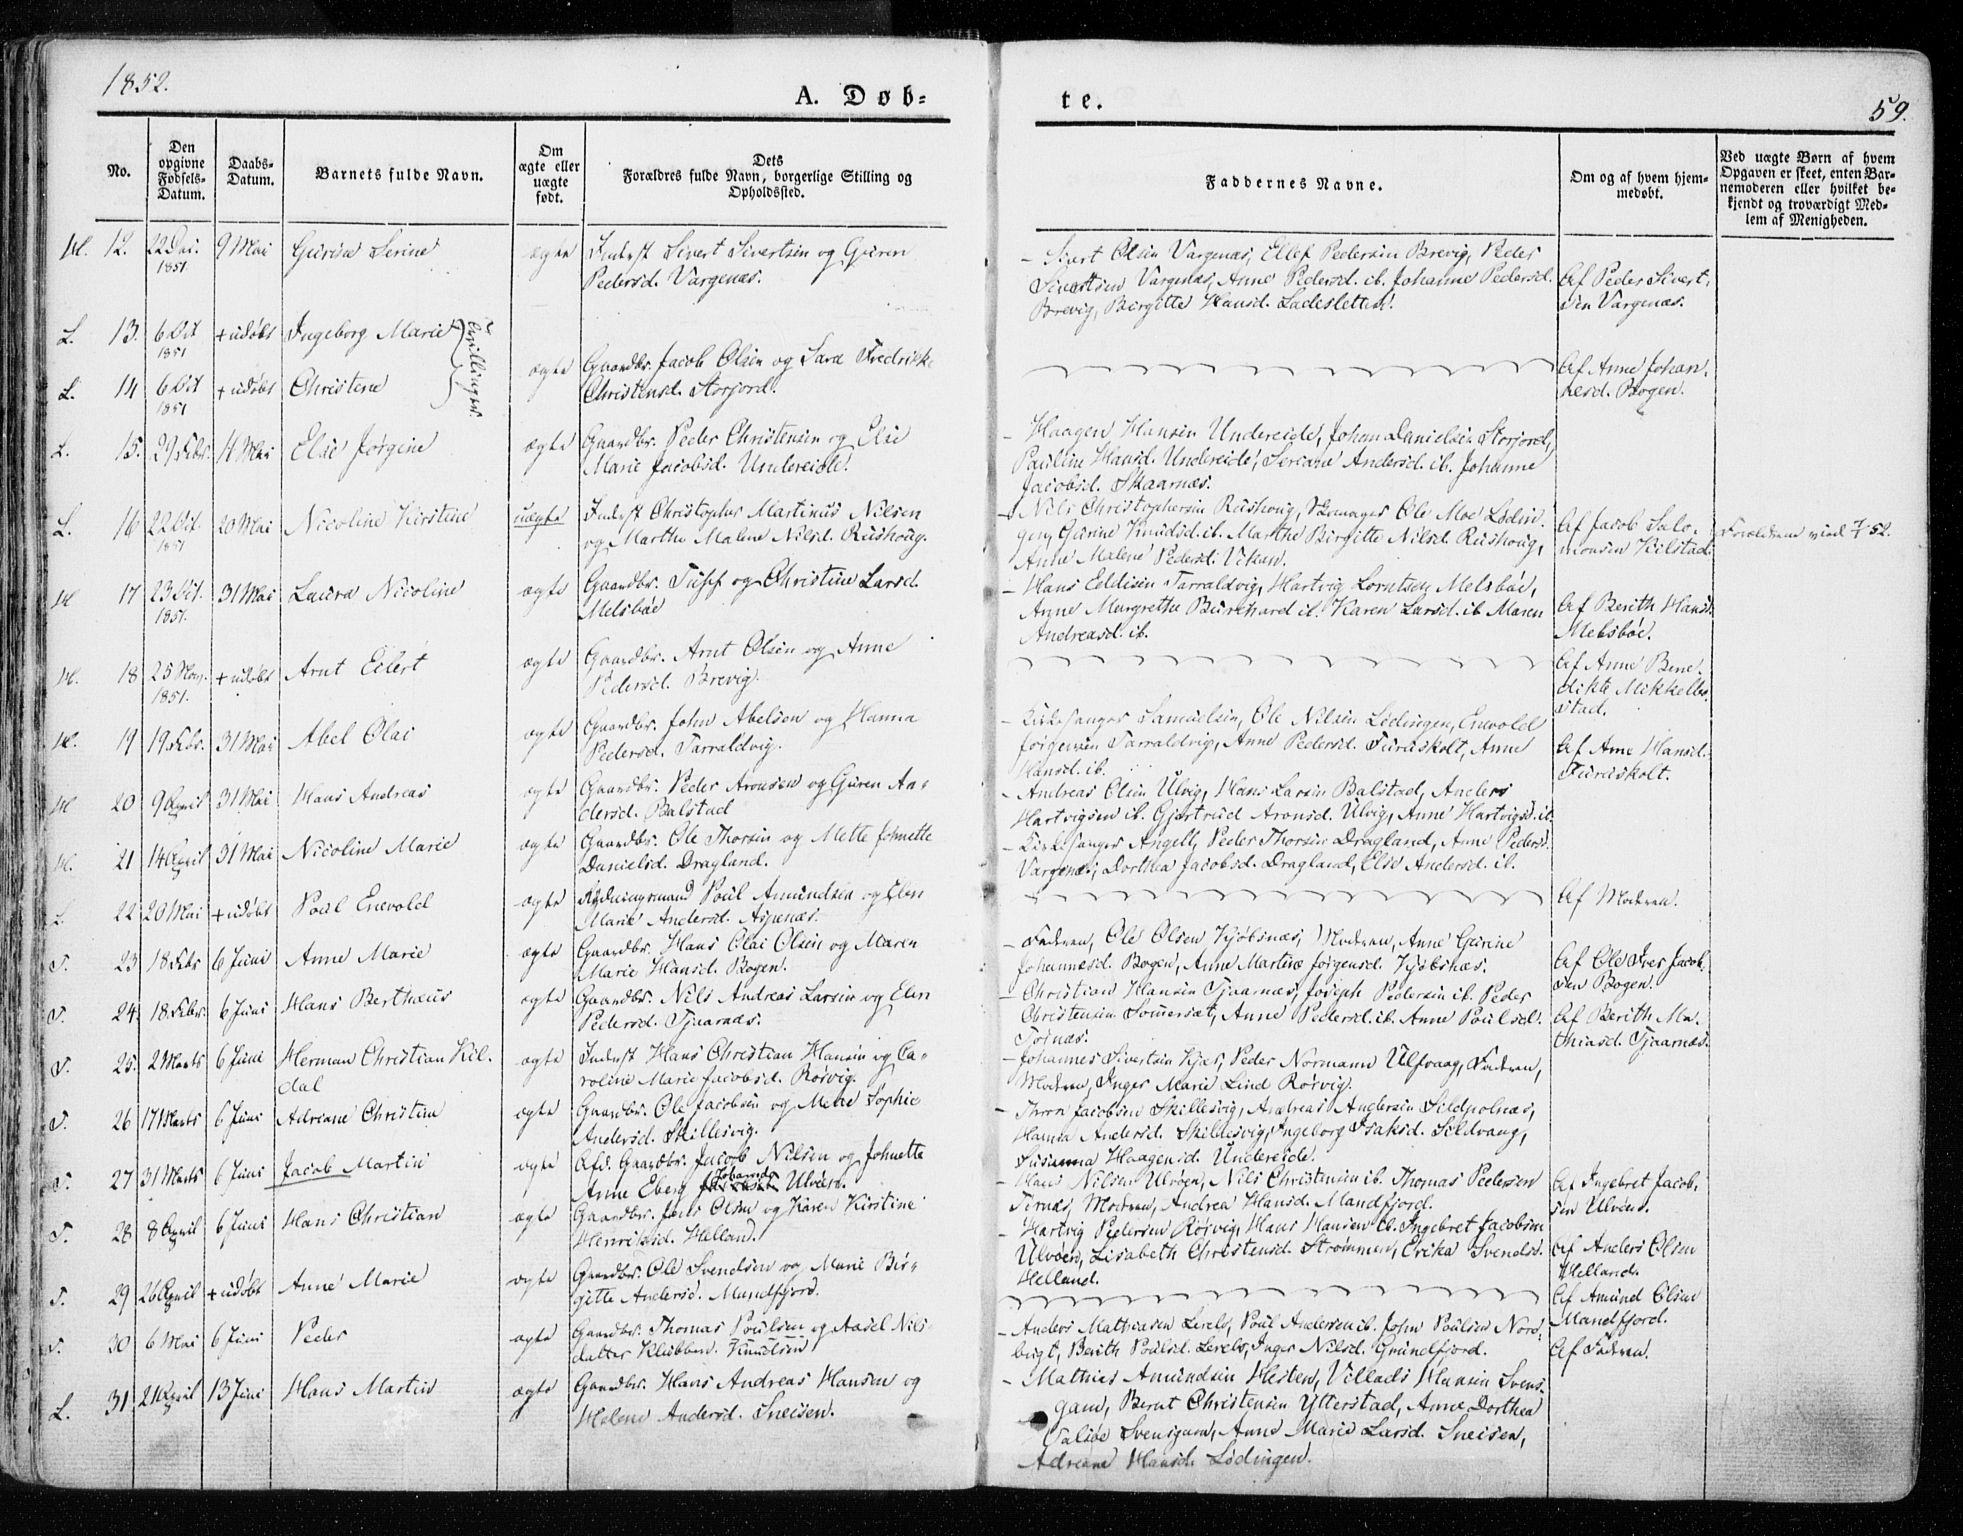 1852.
A. Døb-
te.
59.
No.
Den opgivne Fødsels-Datum.
Daabs-Datum.
Barnets fulde Navn.
Om ægte eller uægte født.
Dets Forældres fulde Navn, borgerlige Stilling og Opholdssted.
Faddernes Navne.
Om og af hvem hjem-medøbt.
Ved uægte Børn af hvem Opgaven er skeet, enten Bar-nemoderen eller hvilket be-kjendt og troværdigt Med-lem af Menigheden.
H. 12. 22 Dec. 1851 9 Mai Gurine Serine ægte Inderst Sivert Sivertsen og Guren
Pedersd. Vargenæs.
- Sivert Olsen Vargenæs, Ellef Pedersen Brevig, Peder
Sivertsen Vargenæs, Anne Pedersd. ib. Johanne Pedersd.
Brevig, Birgitte Hansd. Ladesletten.
Af Peder Sivert-
sen Vargenæs.
L. 13. 6 Oct 1851 + udøbt Ingeborg Marie
Tvillinger.
L. 14 6 Oct 1851 + udøbt Christene
ægte Gaardbr. Jacob Olsen og Sara Fredrikke
Christensd. Storjord.
Af Anne Johan-
nesd. Bogen.
L. 15. 29 Febr. 11 Mai Else Jørgine ægte Gaardbr. Peder Christensen og Else
Marie Jacobsd. Undereide.
- Haagen Hansen Undereide, Johan Danielsen Storjord,
Pauline Hansd. Undereide, Andersd. ib. Johanne
Jacobsd. Skaarnæs.
L. 16 22 Oct. 1851 20 Mai Nicoline Kirstine uægte Inderst Christopher Martinus Nilsen
og Marthe Malene Nilsd. Rushoug.
- Nils Christophersen Rushoug, Ole Moe Lødin-
gen, Gurine Knudsd. ib. Marthe Birgitte Nilsd. Rushoug,
Anne Malene Pedersd. Vikan.
Af Jacob Salo-
monsen Kilstad.
Forældrene viad 7/ 52.
H. 17 23 Oct. 1851. 31 Mai Laura Nicoline ægte Gaardbr. Tuff og Christine Larsd.
Melsbøe
- Hans Eddisen Tarraldvig, Hartvig Lorntsen Melsbøe,
Anne Margrethe Burchard ib. Karen Larsd. ib. Maren
Andreasd. ib.
Af Berith Hansd.
Melsbøe.
H. 18 25 Nov. 1851. + udøbt Arnt Eilert ægte Gaardbr. Arnt Olsen og Anne
Pedersd. Brevig.
Af Anne Bene-
dikte Mikkelbo-
stad.
H. 19 19 Febr. 31 Mai Abel Olai ægte Gaardbr. John Abelsen og Hanna
Pedersd. Tarraldvig.
- Kirkesanger Samuelsen, Ole Nilsen Lødingen, Enevold
Jørgensen Tarraldvig, Anne Pedersd. Furuskolt, Anne
Hansd. ib.
Af Arne Hansd.
Furuskolt.
H 20 9 April 31 Mai Hans Andreas ægte Gaardbr. Peder Aronsen og Guren An-
dersd. Balstad
- Andreas Olsen Ulvig, Hans Larsen Balstad, Anders
Hartvigsen ib. Gjertrud Aronsd. Ulvig, Anne Hartvigsd. ib.
H. 21 14 April 31 Mai Nicoline Marie ægte Gaardbr. Ole Thorsen og Mette Johnette
Danielsd. Dragland.
- Kirkesanger Angell, Peder Thorsen Dragland, Anne Pedersd.
Vargenæs, Dorthea Jacobsd. Dragland, Else Andersd. ib.
L. 22 20 Mai + udøbt Poul Enevold ægte Rydningsmand Poul Amundsen og Elen
Marie Andersd. Aspenæs.
Af Moderen.
T. 23 18 Febr 6 Juni Anne Marie ægte Gaardbr. Hans Olai Olsen og Maren
Marie Hansd. Bogen.
- Faderen, Ole Olsen Kjøbsnæs, Moderen, Anne Gurine
Johannesd. Bogen, Anne Martine Jørgensd. Kjøbsnæs.
Af Ole Iver Jacob-
sen Bogen.
T. 24. 18. Febr. 6 Juni Hans Berthæus ægte Gaardbr. Nils Andreas Larsen og Elen
Pedersd. Tjaarnæs.
- Christian Hansen Tjaarnæs, Joseph Pedersen ib. Peder
Christensen Sommersæt, Anne Pedersd. ib. Anne Poulsd.
Tørnæs.
Af Berith Ma-
thiasd. Tjaarnæs.
T. 25. 2 Marts 6 Juni Herman Christian Kil-
dal ægte Inderst Hans Christian Hansen og Ca-
roline Marie Jacobsd. Rørvig.
- Johannes Sivertsen Kjær, Peder Normann Ulfvaag, Faderen,
Moderen, Inger Marie Lind Rørvig.
T. 26 17 Marts 6 Juni Adriane Christine ægte Gaardbr. Ole Jacobsen og Mette Sophie
Andersd. Skillesvig.
- Thron Jacobsen Skillesvig, Andreas Andersen Sildpolnæs,
Hanna Andersd. Skillesvig, Ingeborg Isaksd. Sildvaag,
Susanna Haagensd. Undereide.
T. 27 31 Marts 6 Juni Jacob Martin ægte Afd. Gaardbr. Jacob Nilsen og Johnette
Anne Eberg Johansd. Ulvøen.
- Hans Nilsen Ulvøen, Nils Christensen ib. Thomas Pedersen
Tirnæs, Moderen, Andrea Hansd. Mandfjord.
Af Ingebret Jacob-
sen Ulvøen.
T. 28 8 April 6 Juni Hans Christian ægte Gaardbr. Jens Olsen og Karen Kirstine
Henriksd. Helland.
- Hartvig Pedersen Rørvig, Hans Hansen ib. Ingebret Jacobsen
Ulvøen, Lisabeth Christensd. Strømmen, Erika Svendsd.
Helland.
Af Anders Olsen
Helland.
T. 29 26 April + udøbt Anne Marie ægte Gaardbr. Ole Svendsen og Marie Bir-
gitte Andersd. Mandfjord.
Af Amund Olsen
Mandfjord.
T. 30 6 Mai 6 Juni Peder ægte Gaardbr. Thomas Poulsen og Aasel Nils-
datter Klubben. Knudsen
- Anders Mathiasen Lerels, Poul Andersen ib. John Poulsen Nord-
bugt, Berith Poulsd. Lerels, Inger Nilsd. Grundfjord.
Af Faderen.
L. 31. 21 April 13 Juni Hans Martin ægte Gaardbr. Hans Andreas Hansen og
Helene Andersd. Sneisen.
- Mathias Amundsen Hesten, Villads Hansen Svens-
gam, Bernt Christensen Ytterstad, Anne Dorthea
Svensgam, Anne Marie Larsd. Sneisen,
Adriane Hansd. Lødingen.